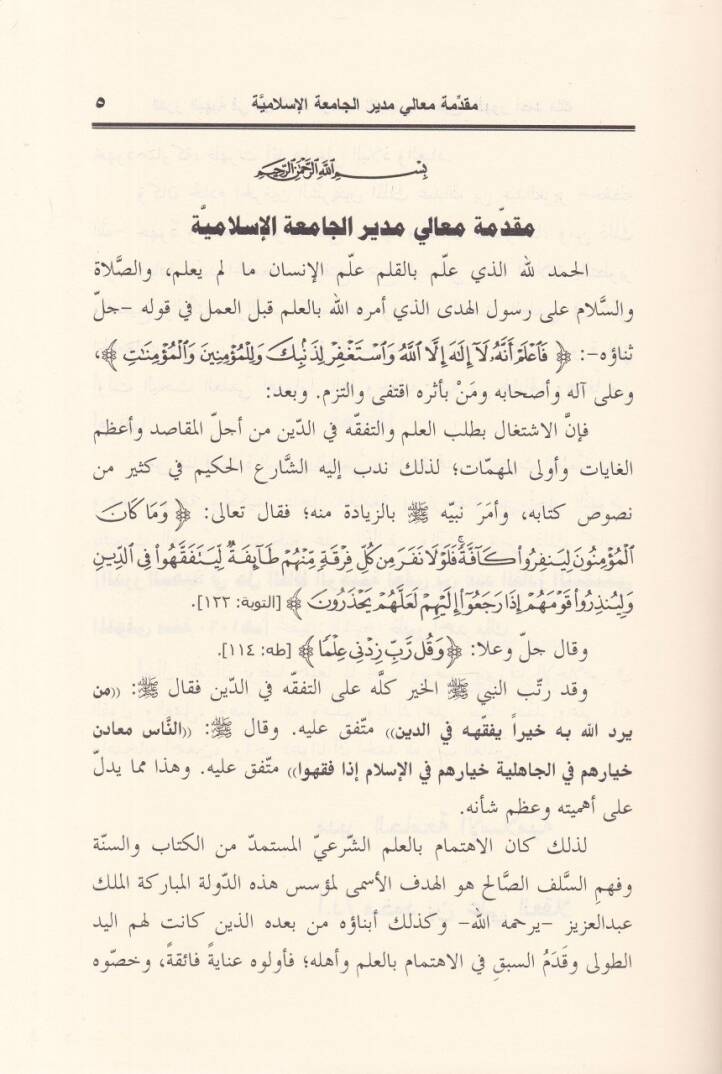 مقدِّمة معالي مدير الجامعة الإسلاميَّة ٥
بِسْمِ اللَّهِ الرَّحْمَنِ الرَّحِيمِ
مقدّمة معالي مدير الجامعة الإسلاميَّة
الحمد لله الذي علّم بالقلم علّم الإنسان ما لم يعلم، والصَّلاة
والسَّلام على رسول الهدى الذي أمره الله بالعلم قبل العمل في قوله -جلّ
ثناؤه-: ﴿ فَٱعْلَمْ أَنَّهُۥ لَآ إِلَٰهَ إِلَّا ٱللَّهُ وَٱسْتَغْفِرْ لِذَنۢبِكَ وَلِلْمُؤْمِنِينَ وَٱلْمُؤْمِنَٰتِ ﴾،
وعلى آله وأصحابه ومَنْ بأثره اقتفى والتزم. وبعد:
فإنَّ الاشتغال بطلب العلم والتفقّه في الدّين من أجلّ المقاصد وأعظم
الغايات وأولى المهمّات؛ لذلك ندب إليه الشَّارع الحكيم في كثير من
نصوص كتابه، وأمَرَ نبيّه ﷺ بالزيادة منه؛ فقال تعالى: ﴿ وَمَا كَانَ
ٱلْمُؤْمِنُونَ لِيَنفِرُوا۟ كَآفَّةً ۚ فَلَوْلَا نَفَرَ مِن كُلِّ فِرْقَةٍ مِّنْهُمْ طَآئِفَةٌ لِّيَتَفَقَّهُوا۟ فِى ٱلدِّينِ
وَلِيُنذِرُوا۟ قَوْمَهُمْ إِذَا رَجَعُوٓا۟ إِلَيْهِمْ لَعَلَّهُمْ يَحْذَرُونَ ﴾ [التوبة: ١٢٢].
وقال جلّ وعلا: ﴿ وَقُل رَّبِّ زِدْنِى عِلْمًا ﴾ [طه: ١١٤].
وقد رتّب النبي ﷺ الخير كلَّه على التفقّه في الدّين فقال ﷺ: ((من
يرد الله به خيراً يفقّهه في الدين)) متّفق عليه. وقال ﷺ: ((النَّاس معادن
خيارهم في الجاهلية خيارهم في الإسلام إذا فقهوا)) متّفق عليه. وهذا مما يدلّ
على أهميته وعظم شأنه.
لذلك كان الاهتمام بالعلم الشّرعيّ المستمدّ من الكتاب والسنّة
وفهمِ السَّلف الصَّالح هو الهدف الأسمى لمؤسس هذه الدّولة المباركة الملك
عبدالعزيز -يرحمه الله- وكذلك أبناؤه من بعده الذين كانت لهم اليد
الطولى وقَدَمُ السبقِ في الاهتمام بالعلم وأهله؛ فأولوه عنايةً فائقةً، وخصّوه